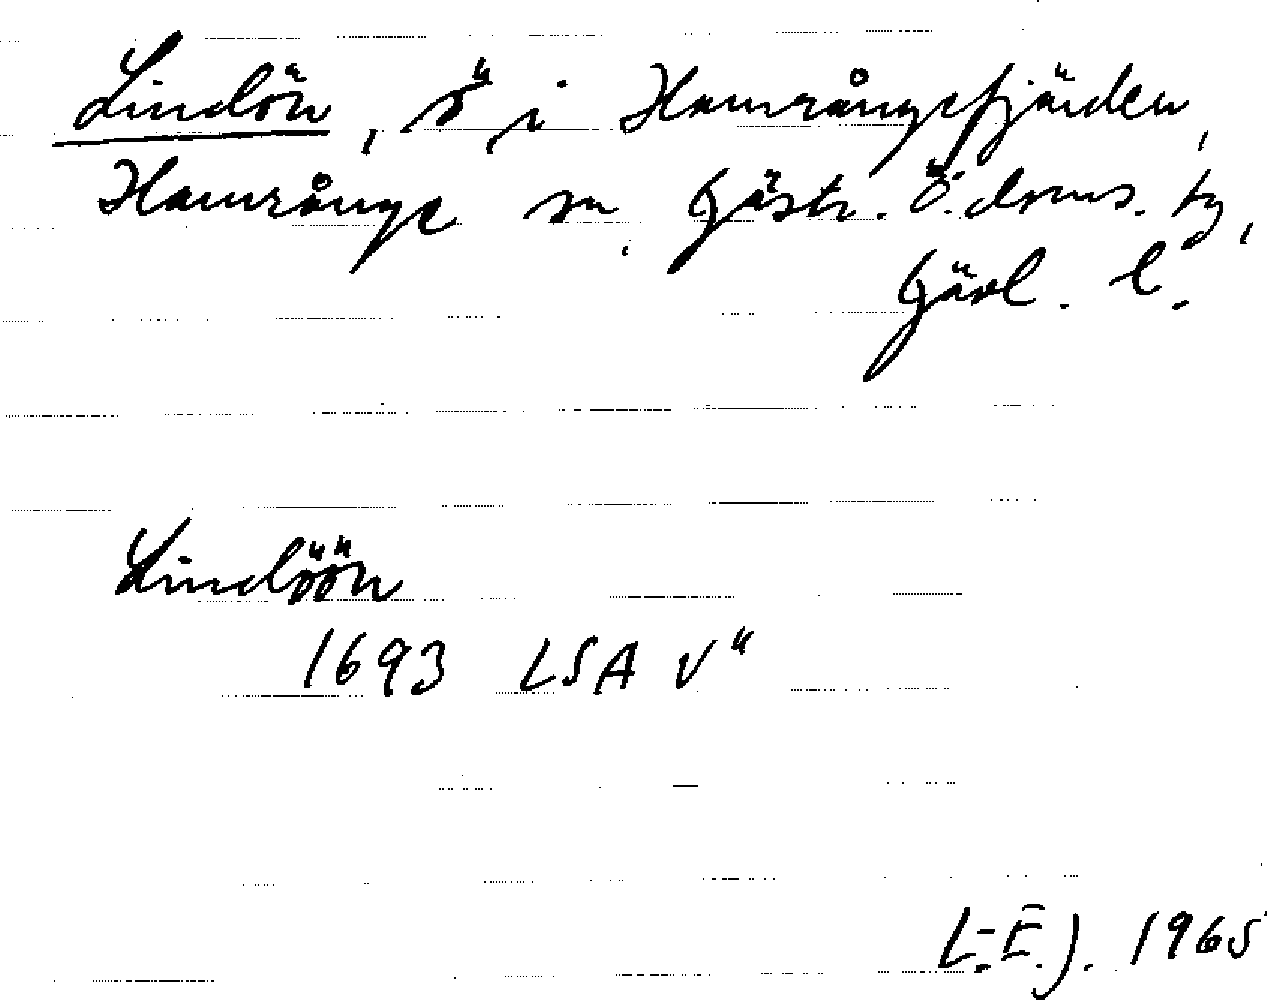 Lindön, ö i Hamrångefjärden,
Hamrånge sn, Gästr. Ö. doms. tg,
Gävl. l.
Lindöön
1693 LSA V"
L.-E.J. 1965